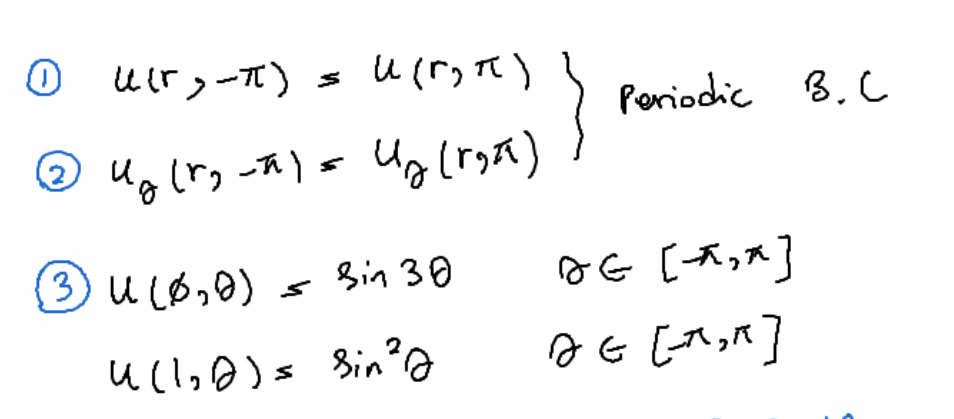 ① u(r, -π) = u(r, π)
② u_θ(r, -π) = u_θ(r, π) } Periodic B.C
③ u(ϕ, θ) = sin 3θ θ ∈ [-π, π]
u(1, θ) = sin²θ θ ∈ [-π, π]